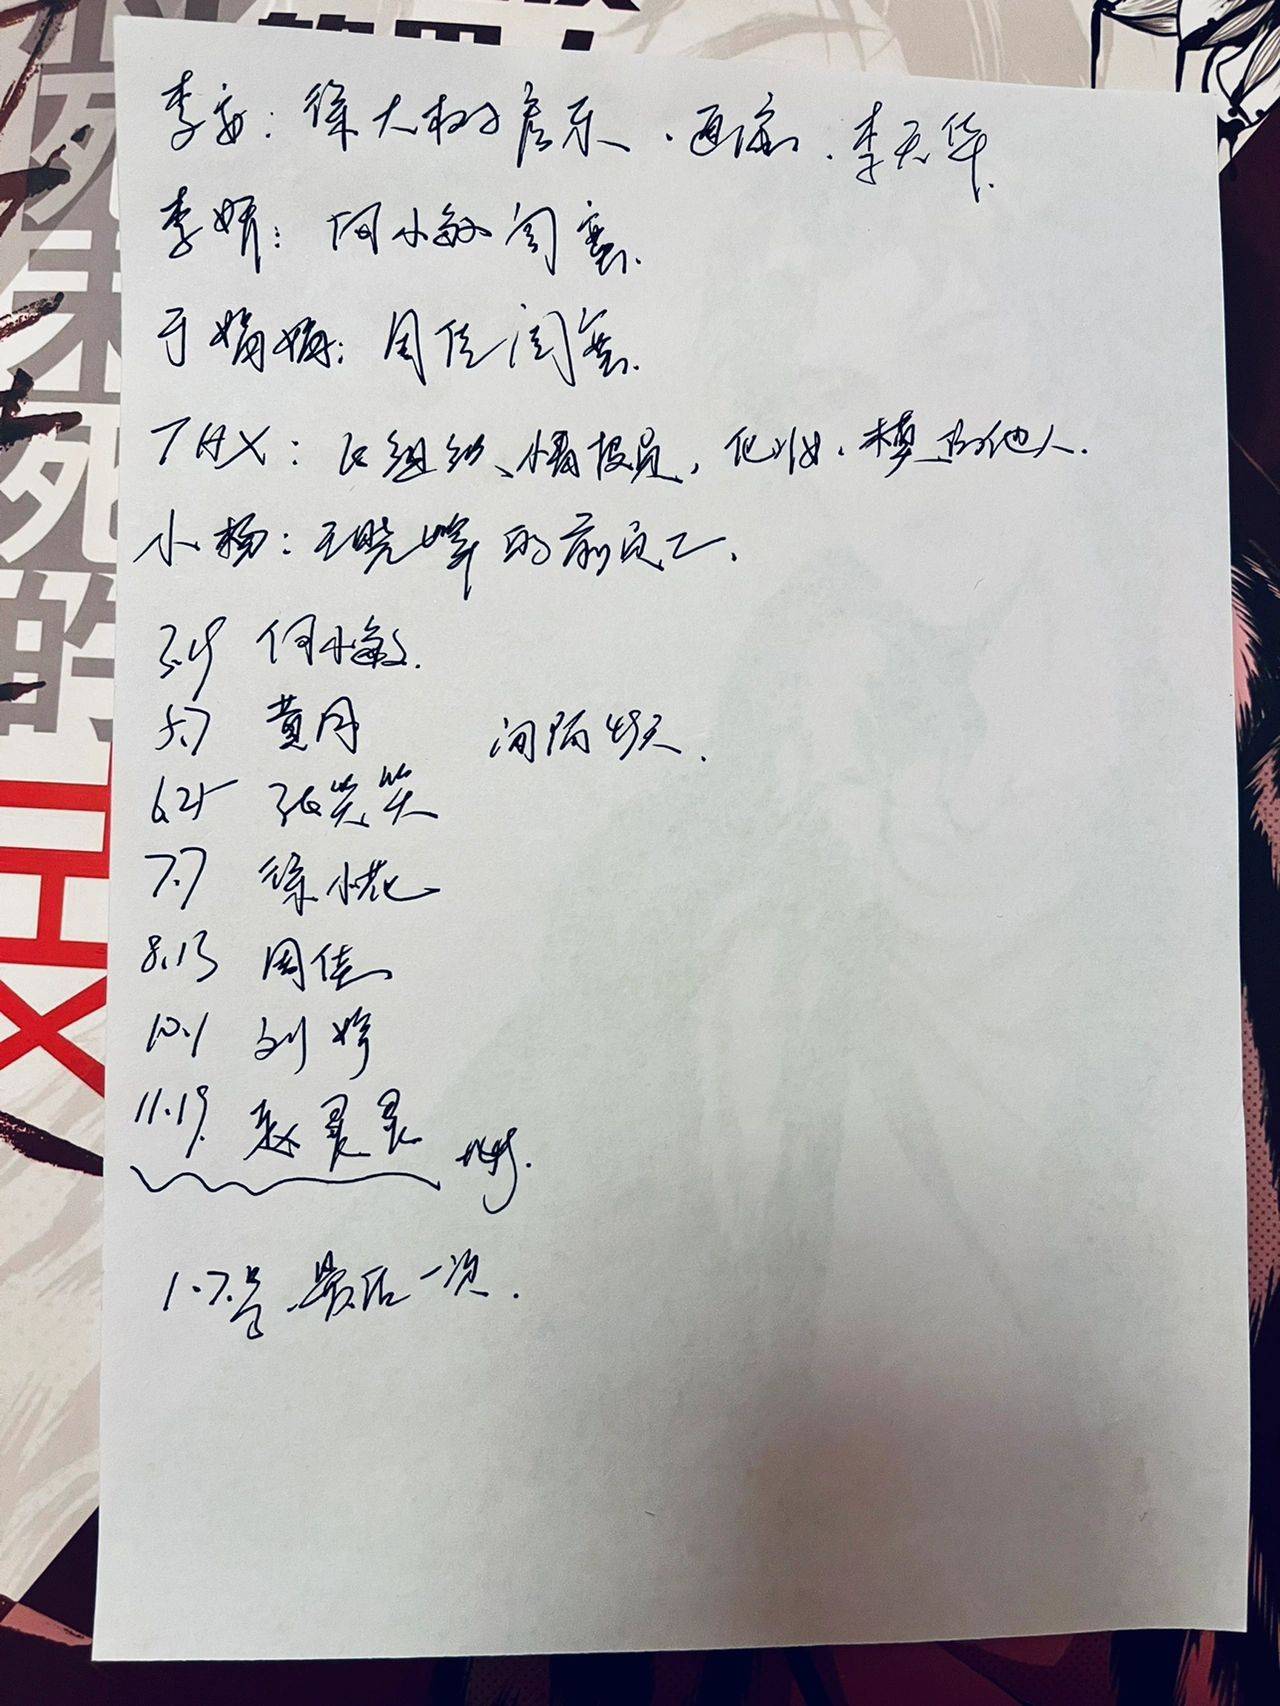 死
未
死
的
THX
李安：徐大树房东．酒店．李天华．
李妍：何小敏闺蜜．
于娟娟：周佳闺蜜．
THX：组织、情报员，化妆．模仿他人．
小杨：王晓峰的前员工．
3.19 何小敏．
5.7 黄月 间隔49天．
6.25 张笑笑
7.7 徐小花
8.13 周佳
10.1 刘婷
11.19. 赵灵灵
1.7号.最后一次．